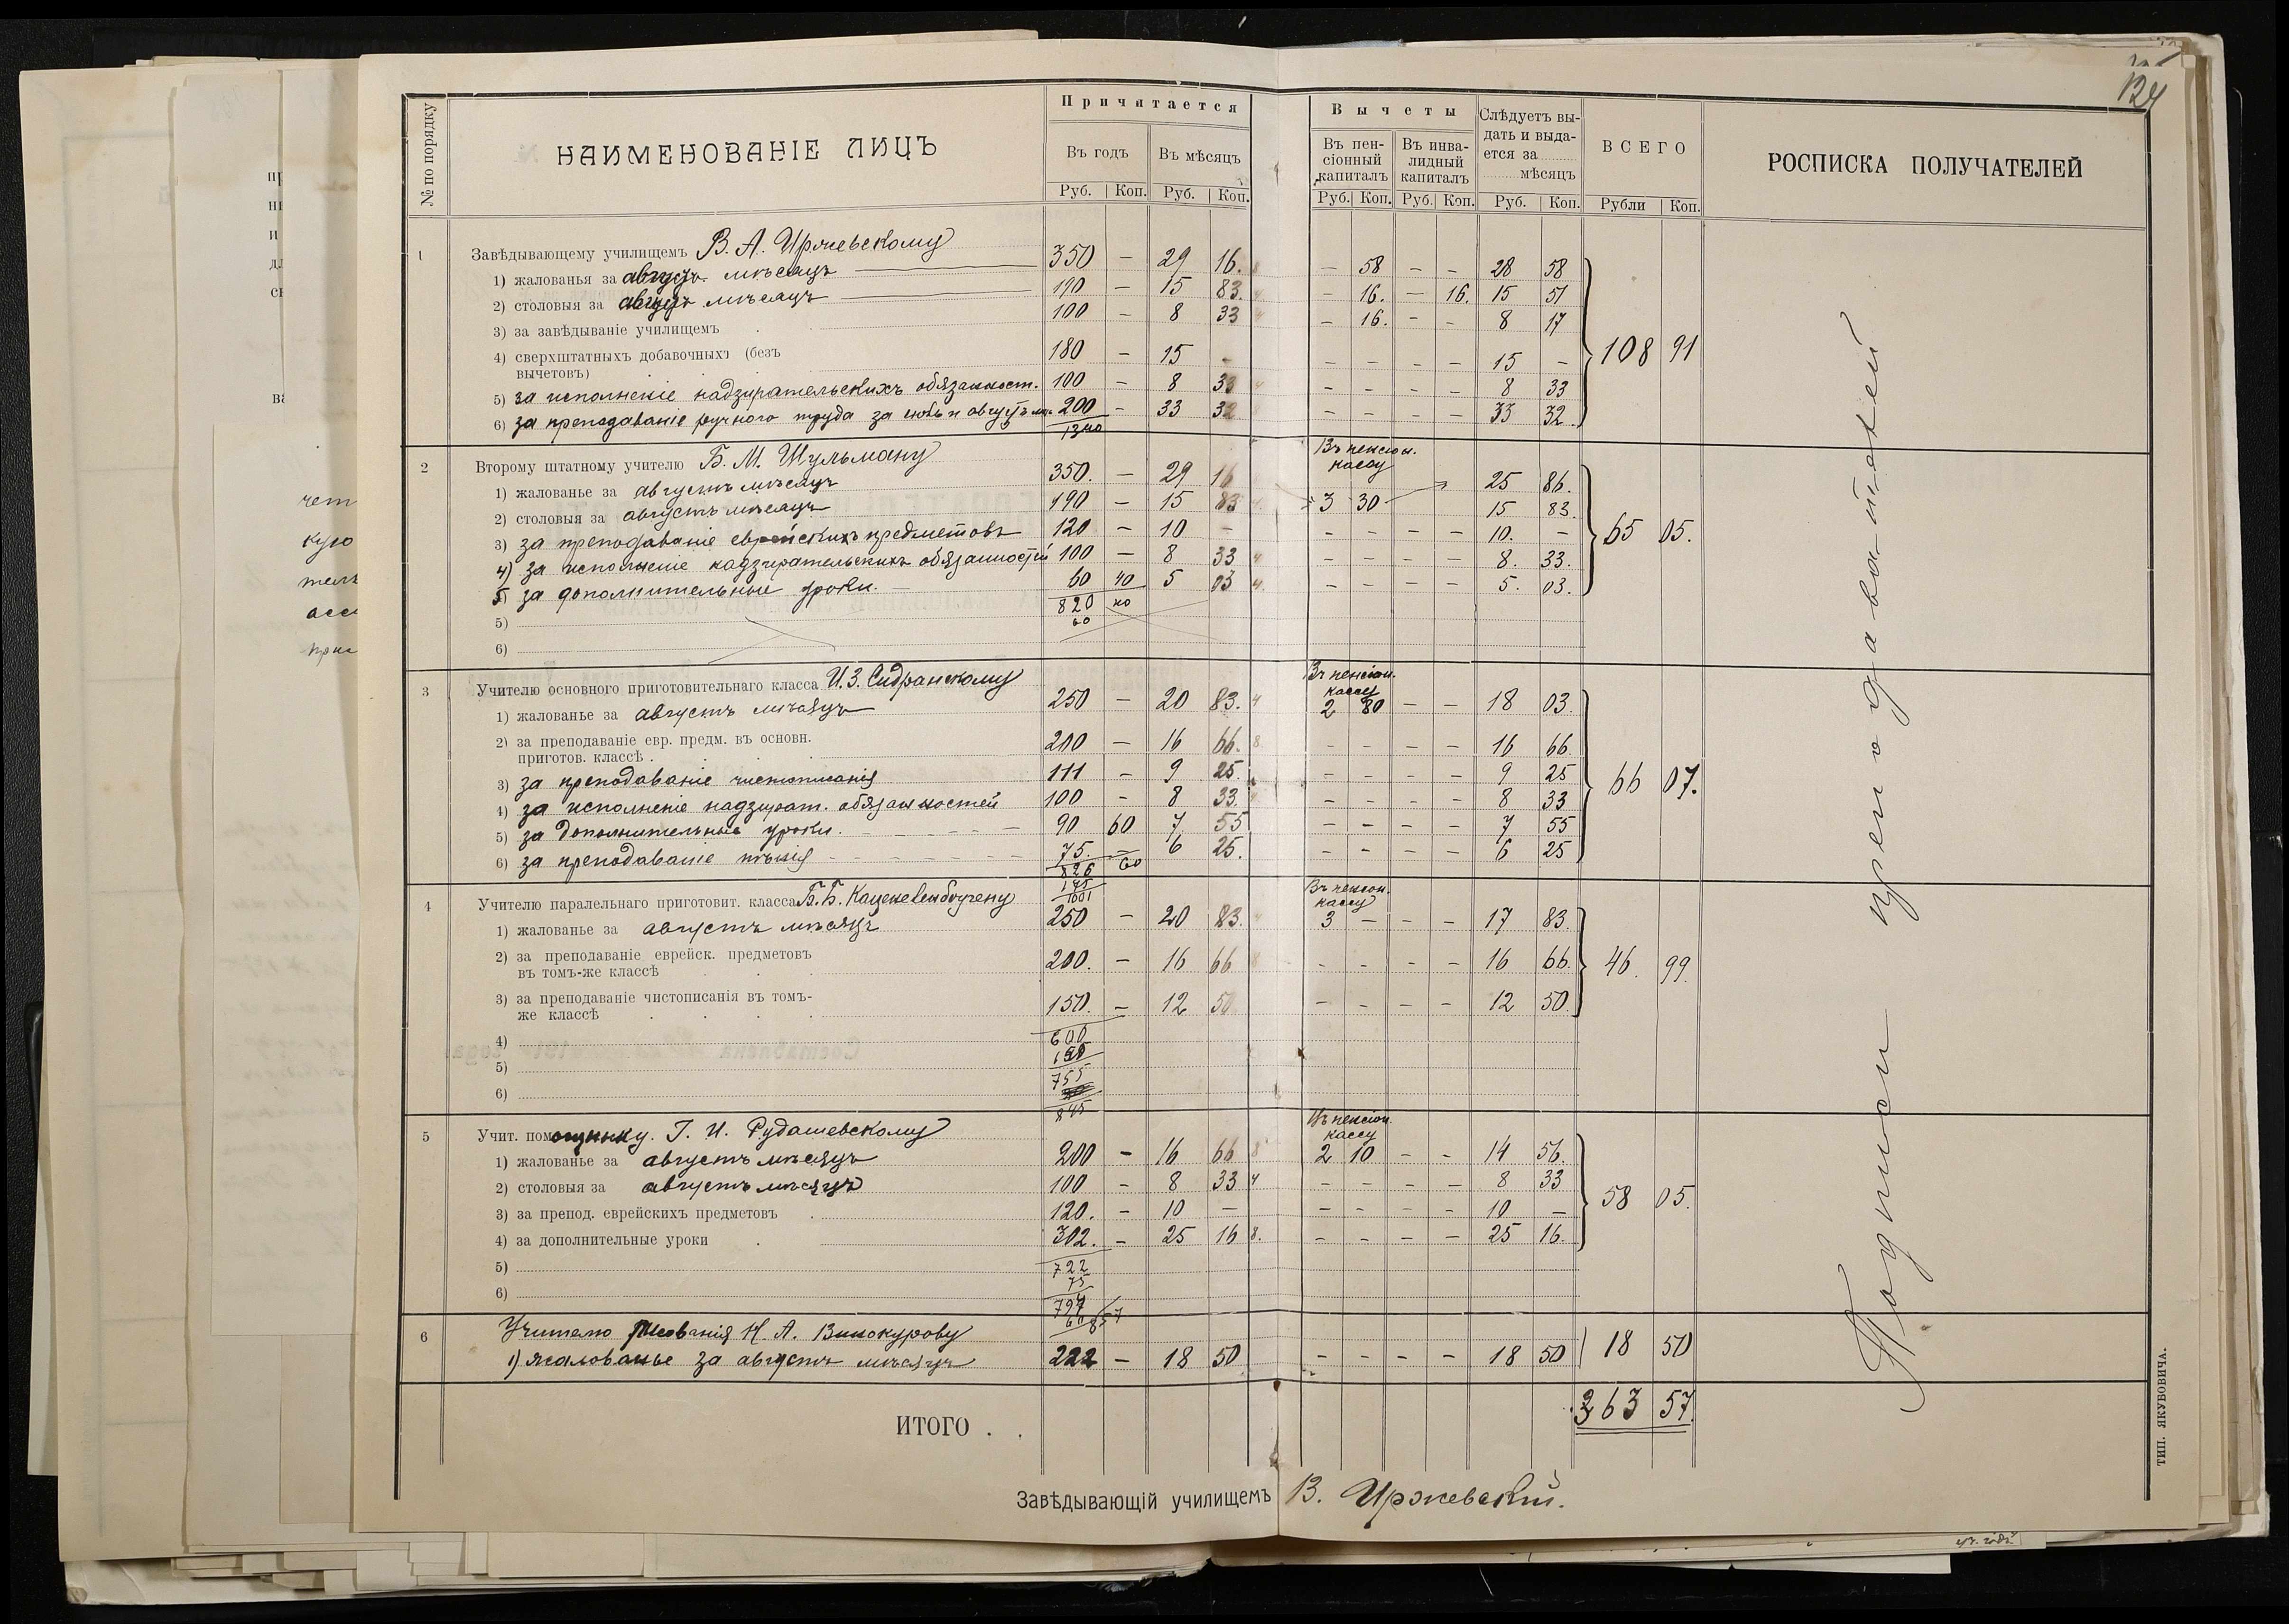 124
№ по порядку
НАИМЕНОВАНІЕ ЛИЦЪ
Причитается
Въ годъ
Въ мѣсяцъ
Руб. Коп. Руб. Коп.
Вычеты
Въ пенсіонный капиталъ
Въ инвалидный капиталъ
Слѣдуетъ выдать и выдается за ...... мѣсяцъ
ВСЕГО
РОСПИСКА ПОЛУЧАТЕЛЕЙ
Руб. Коп. Руб. Коп. Руб. Коп. Рубли Коп.
1 Завѣдывающему училищемъ В. А. Иржевскому
1) жалованья за августъ мѣсяцъ 350 – 29 16. – 58 – – 28 58
2) столовыя за августъ мѣсяцъ 190 – 15 83. – 16. – 16. 15 51
3) за завѣдываніе училищемъ 100 – 8 33 – 16. – – 8 17
4) сверхштатныхъ добавочныхъ (безъ вычетовъ) 180 – 15 – – – – – 15 –
108 91
5) за исполненіе надзирательскихъ обязанност. 100 – 8 33 – – – – 8 33
6) за преподаваніе ручного труда за іюль и августъ мѣс. 200 – 33 32 – – – – 33 32
2 Второму штатному учителю Б. М. Шульману
Въ пенсіон. кассу
1) жалованье за августъ мѣсяцъ 350. – 29 16 3 30 25 86.
2) столовыя за августъ мѣсяцъ 190 – 15 83 15 83.
3) за преподаваніе еврейскихъ предметовъ 120 – 10 – – – – – 10. –
65 05.
4) за исполненіе надзирательскихъ обязанностей 100 – 8 33 4 – – – – 8. 33.
5) за дополнительные уроки. 60 40 5 03 4. – – – – 5. 03.
820 40
60
5)
6)
3 Учителю основного приготовительнаго класса И. З. Сидранскому
Въ пенсіон. кассу
1) жалованье за августъ мѣсяцъ 250 – 20 83. 4 2 80 – – 18 03.
2) за преподаваніе евр. предм. въ основн.
приготов. классѣ . 200 – 16 66. 8 – – – – 16 66.
3) за преподаваніе чистописанія 111 – 9 25. – – – – 9 25
66 07.
4) за исполненіе надзират. обязанностей 100 – 8 33. – – – – 8 33
5) за дополнительные уроки. 90 60 7 55 – – – – 7 55
6) за преподаваніе пѣнія 75. – 6 25. – – – – 6 25
826 60
4 Учителю паралельнаго приготовит. класса
Въ пенсіон. кассу
1) жалованье за августъ мѣсяцъ 250 – 20 83. 3 – – – 17 83.
2) за преподаваніе еврейск. предметовъ
въ томъ-же классѣ 200. – 16 66 8 – – – – 16 66.
46. 99.
3) за преподаваніе чистописанія въ томъ-
же классѣ 150. – 12 50 – – – – 12 50.
4) 600
5)
755
6)
845
5 Учит. помощнику. Г. И. Рудашевскому
Въ пенсіон. кассу
1) жалованье за августъ мѣсяцъ 200 – 16 66 8 2 10 – – 14 56.
2) столовыя за августъ мѣсяцъ 100 – 8 33 4 – – – – 8 33
58 05.
3) за препод. еврейскихъ предметовъ 120. – 10 – – – – – 10 –
4) за дополнительные уроки 302. – 25 16 8. – – – – 25 16.
5) 722
75
6)
6 Учителю рисованія Н. А. Винокурову
1) жалованье за августъ мѣсяцъ 222 – 18 50 – – – – 18 50
18 50
ИТОГО . . 363 57.
Подписи преподавателей
Завѣдывающій училищемъ В. Иржевскій.
ТИП. ЯКУБОВИЧА.